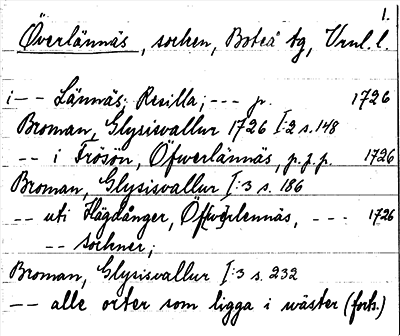 1.
Överlännäs, socken, Boteå tg, Vnl. l.
i -- Lännäs; Resilla; --- p. 1726
Broman, Glysisvallur 1726 I:2 s. 148
-- i Frösön, Öfwerlännäs, p.p.p. 1726
Broman, Glysisvallur I:3 s. 186
-- uti Högdånger, Öf[w]erlennäs, --- 1726
-- sochner;
Broman, Glysisvallur I:3 s. 232
-- alle orter som ligga i wäster (forts.)